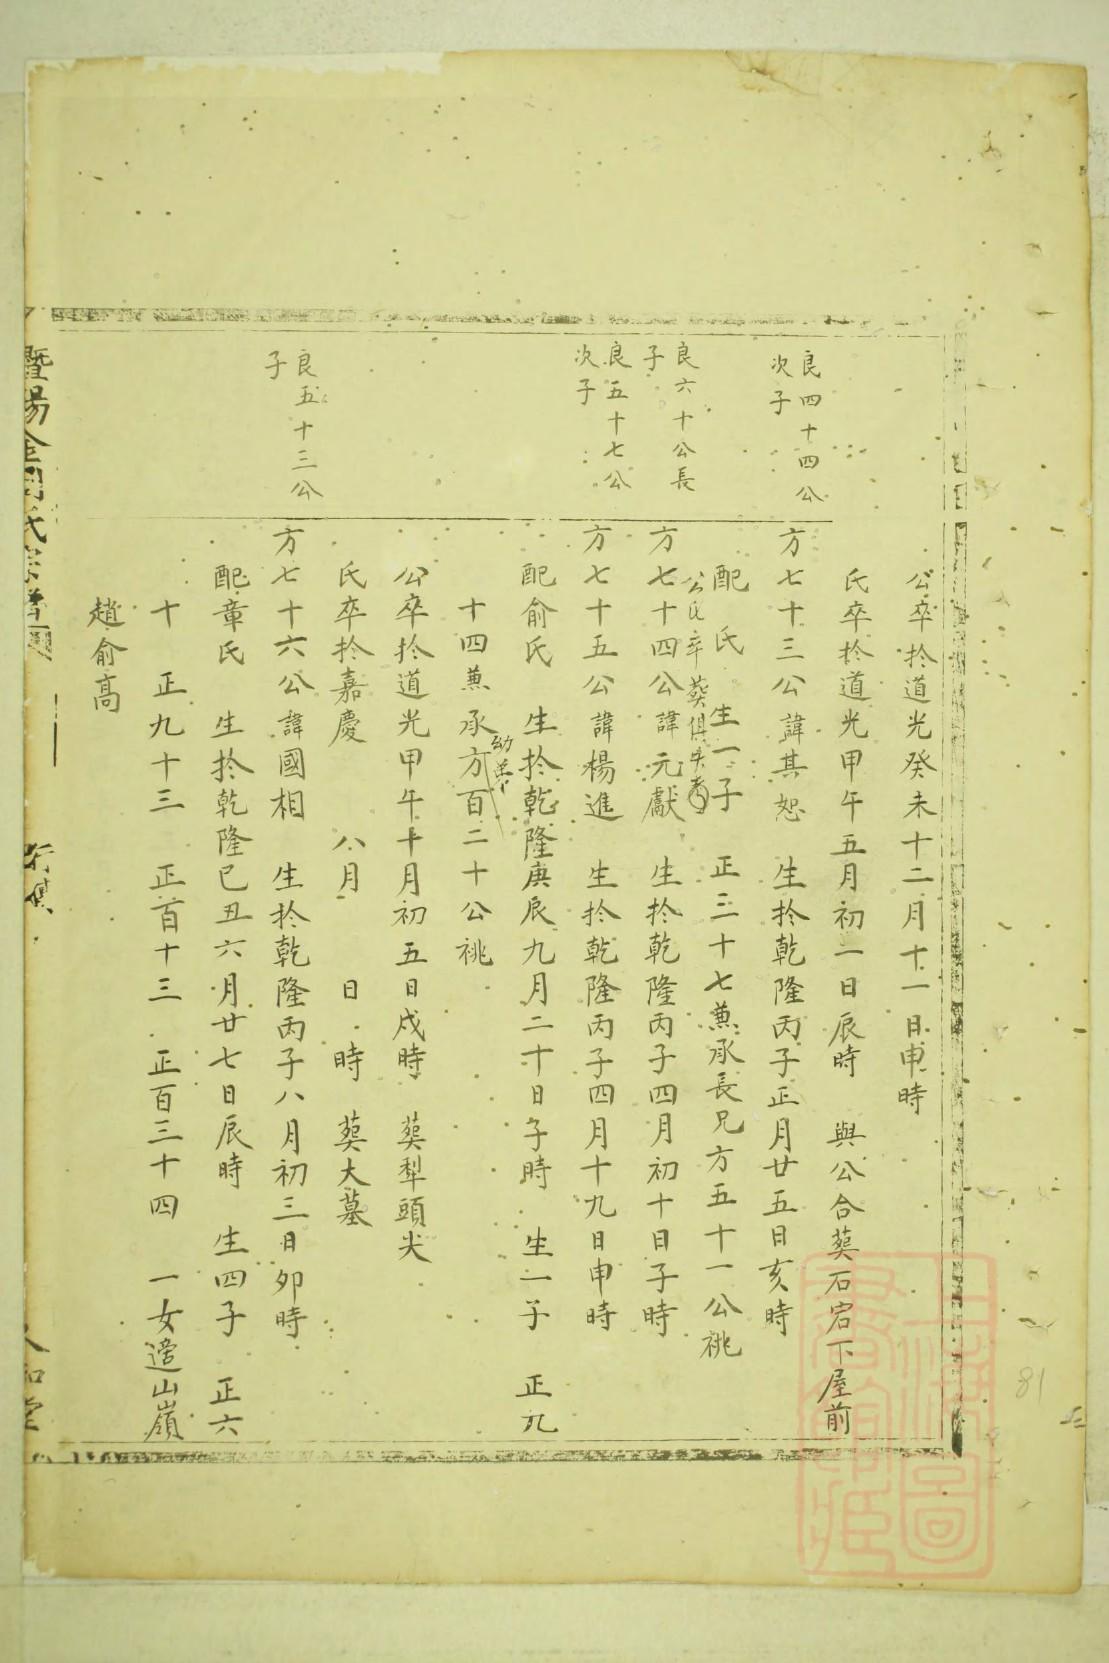 公卒於道光癸未十二月十一日申時
氏卒於道光甲午五月初一日辰時 與公合葬石宕下屋前
良四十四公
次子
方七十三公諱其恕 生於乾隆丙子正月廿五日亥時
配 氏 生一子 正三十七兼承長兄方五十一公祧
公氏卒葬俱失考
良六十公長
子
方七十四公諱元獻 生於乾隆丙子四月初十日子時
良五十七公
次子
方七十五公諱楊進 生於乾隆丙子四月十九日申時
配俞氏 生於乾隆庚辰九月二十日子時 生一子 正九
十四兼承方百二十公祧
幼弟
公卒於道光甲午十月初五日戌時 葬犁頭尖
氏卒於嘉慶 八月 日 時 葬大墓
良五十三公
子
方七十六公諱國相 生於乾隆丙子八月初三日卯時
配章氏 生於乾隆己丑六月廿七日辰時 生四子 正六
十 正九十三 正百十三 正百三十四 一女適山嶺
趙俞高
暨陽 氏宗譜
81